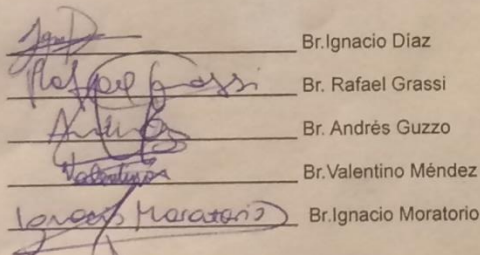 Br.Ignacio Díaz
Rafael Grassi Br. Rafael Grassi
Andrés Br. Andrés Guzzo
Valentino Br.Valentino Méndez
Ignacio Moratorio Br.Ignacio Moratorio